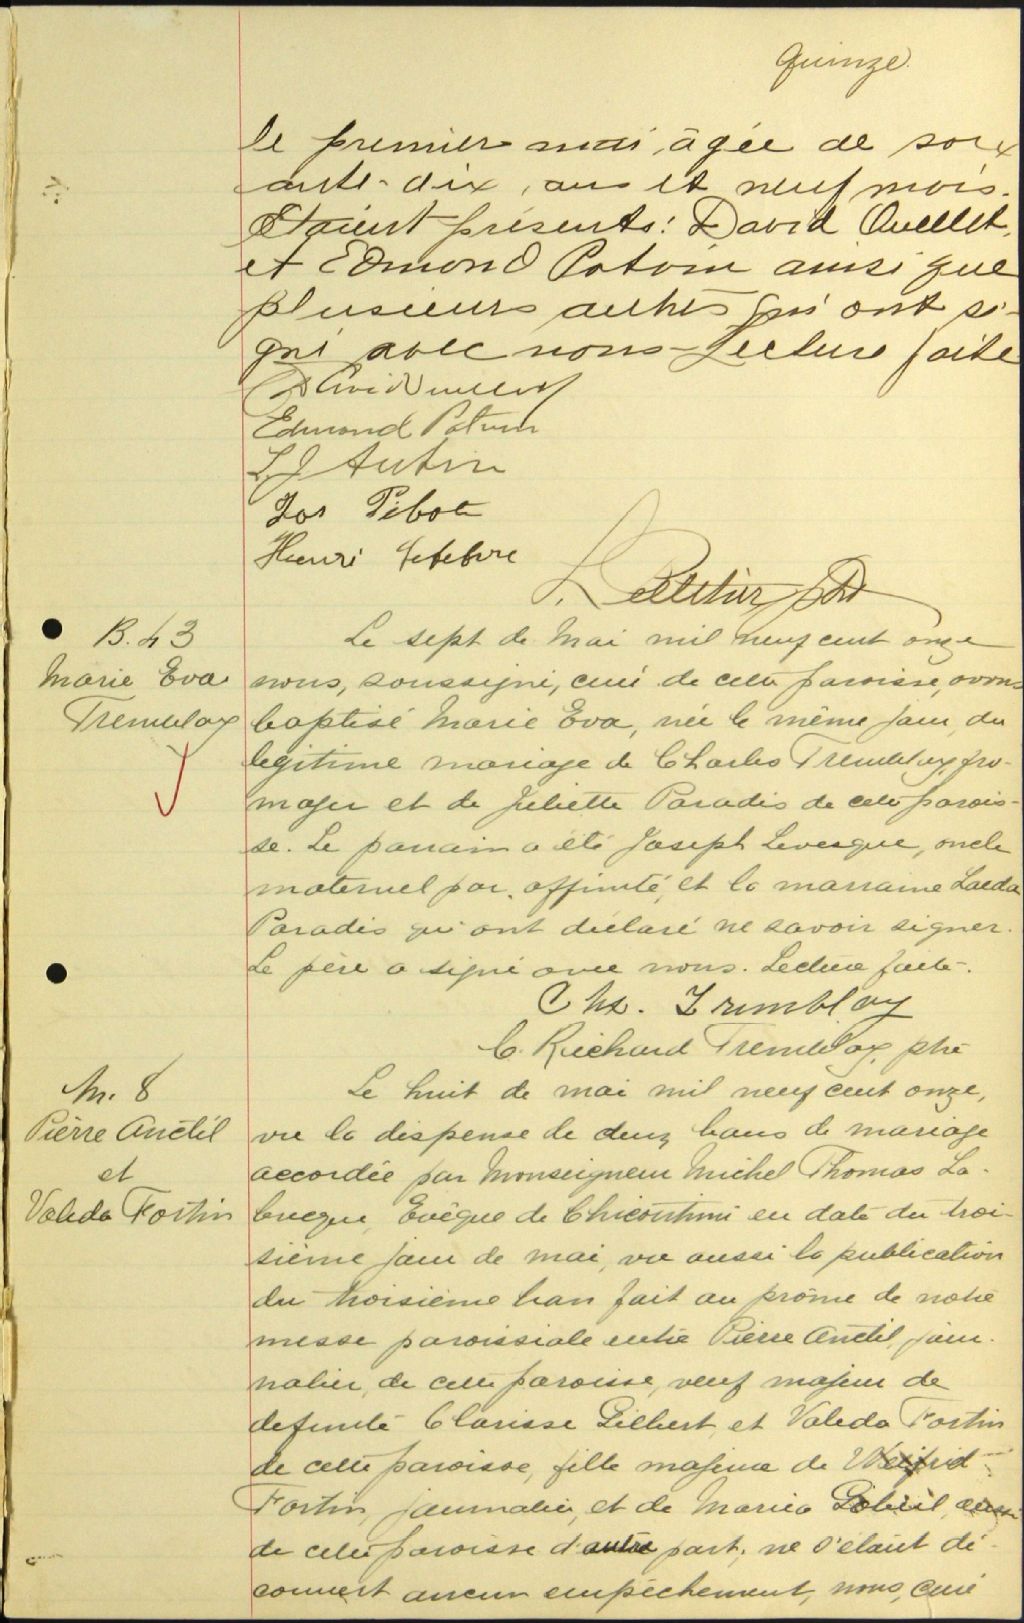 quinze
le premier mai, âgée de soix
ante-dix, ans et neuf mois.
Etaient présents: David Ouellet,
et Edmond Potvin ainsi que
plusieurs autres qui ont si-
gné avec nous - Lecture faite
David Ouellet
Edmond Potvin
L. J. Aubin
Jos Pibote
Henri Lefebvre
L. Pelletier Ptr
B. 43
Marie Eva
Tremblay
Le sept de Mai mil neuf cent onze
nous, soussigné, curé de cette paroisse, avons
baptisé Marie Eva, née le même jour, du
légitime mariage de Charles Tremblay, fro-
mager et de Juliette Paradis de cette parois-
se. Le parrain a été Joseph Levesque, oncle
maternel par affinité, et la marraine Laeda
Paradis qui ont déclaré ne savoir signer.
Le père a signé avec nous. Lecture faite.
Chs. Tremblay
C. Richard Tremblay, ptre
M. 8
Pierre Anctil
et
Valeda Fortin
Le huit de mai mil neuf cent onze,
vu la dispense de deux bans de mariage
accordée par Monseigneur Michel Thomas La-
brecque, Evêque de Chicoutimi en date du troi-
sième jour de mai, vu aussi la publication
du troisième ban fait au prône de notre
messe paroissiale entre Pierre Anctil, jour-
nalier, de cette paroisse, veuf majeur de
defunte Clarisse Gilbert, et Valeda Fortin
de cette paroisse, fille majeure de Wilfrid
Fortin, journalier, et de Maria Gobeil, aussi
de cette paroisse d'autre part; ne s'étant dé-
couvert aucun empêchement, nous, curé